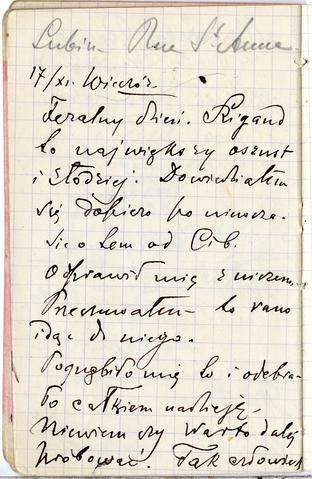 Lubin - Rue St Anne
17/XI. Wieczór
Feralny dzień. Rigaud
to największy oszust
i złodziej. Dowiedziałem
się dopiero po
się o tem od Cib.
Odprawił mię z niczem.
Przeczuwałem - to rano
idąc do niego.
Pognębiło mię to i odebra-
ło całkiem nadzieję.
Niewiem czy warto dalej
próbować. Tak człowiek